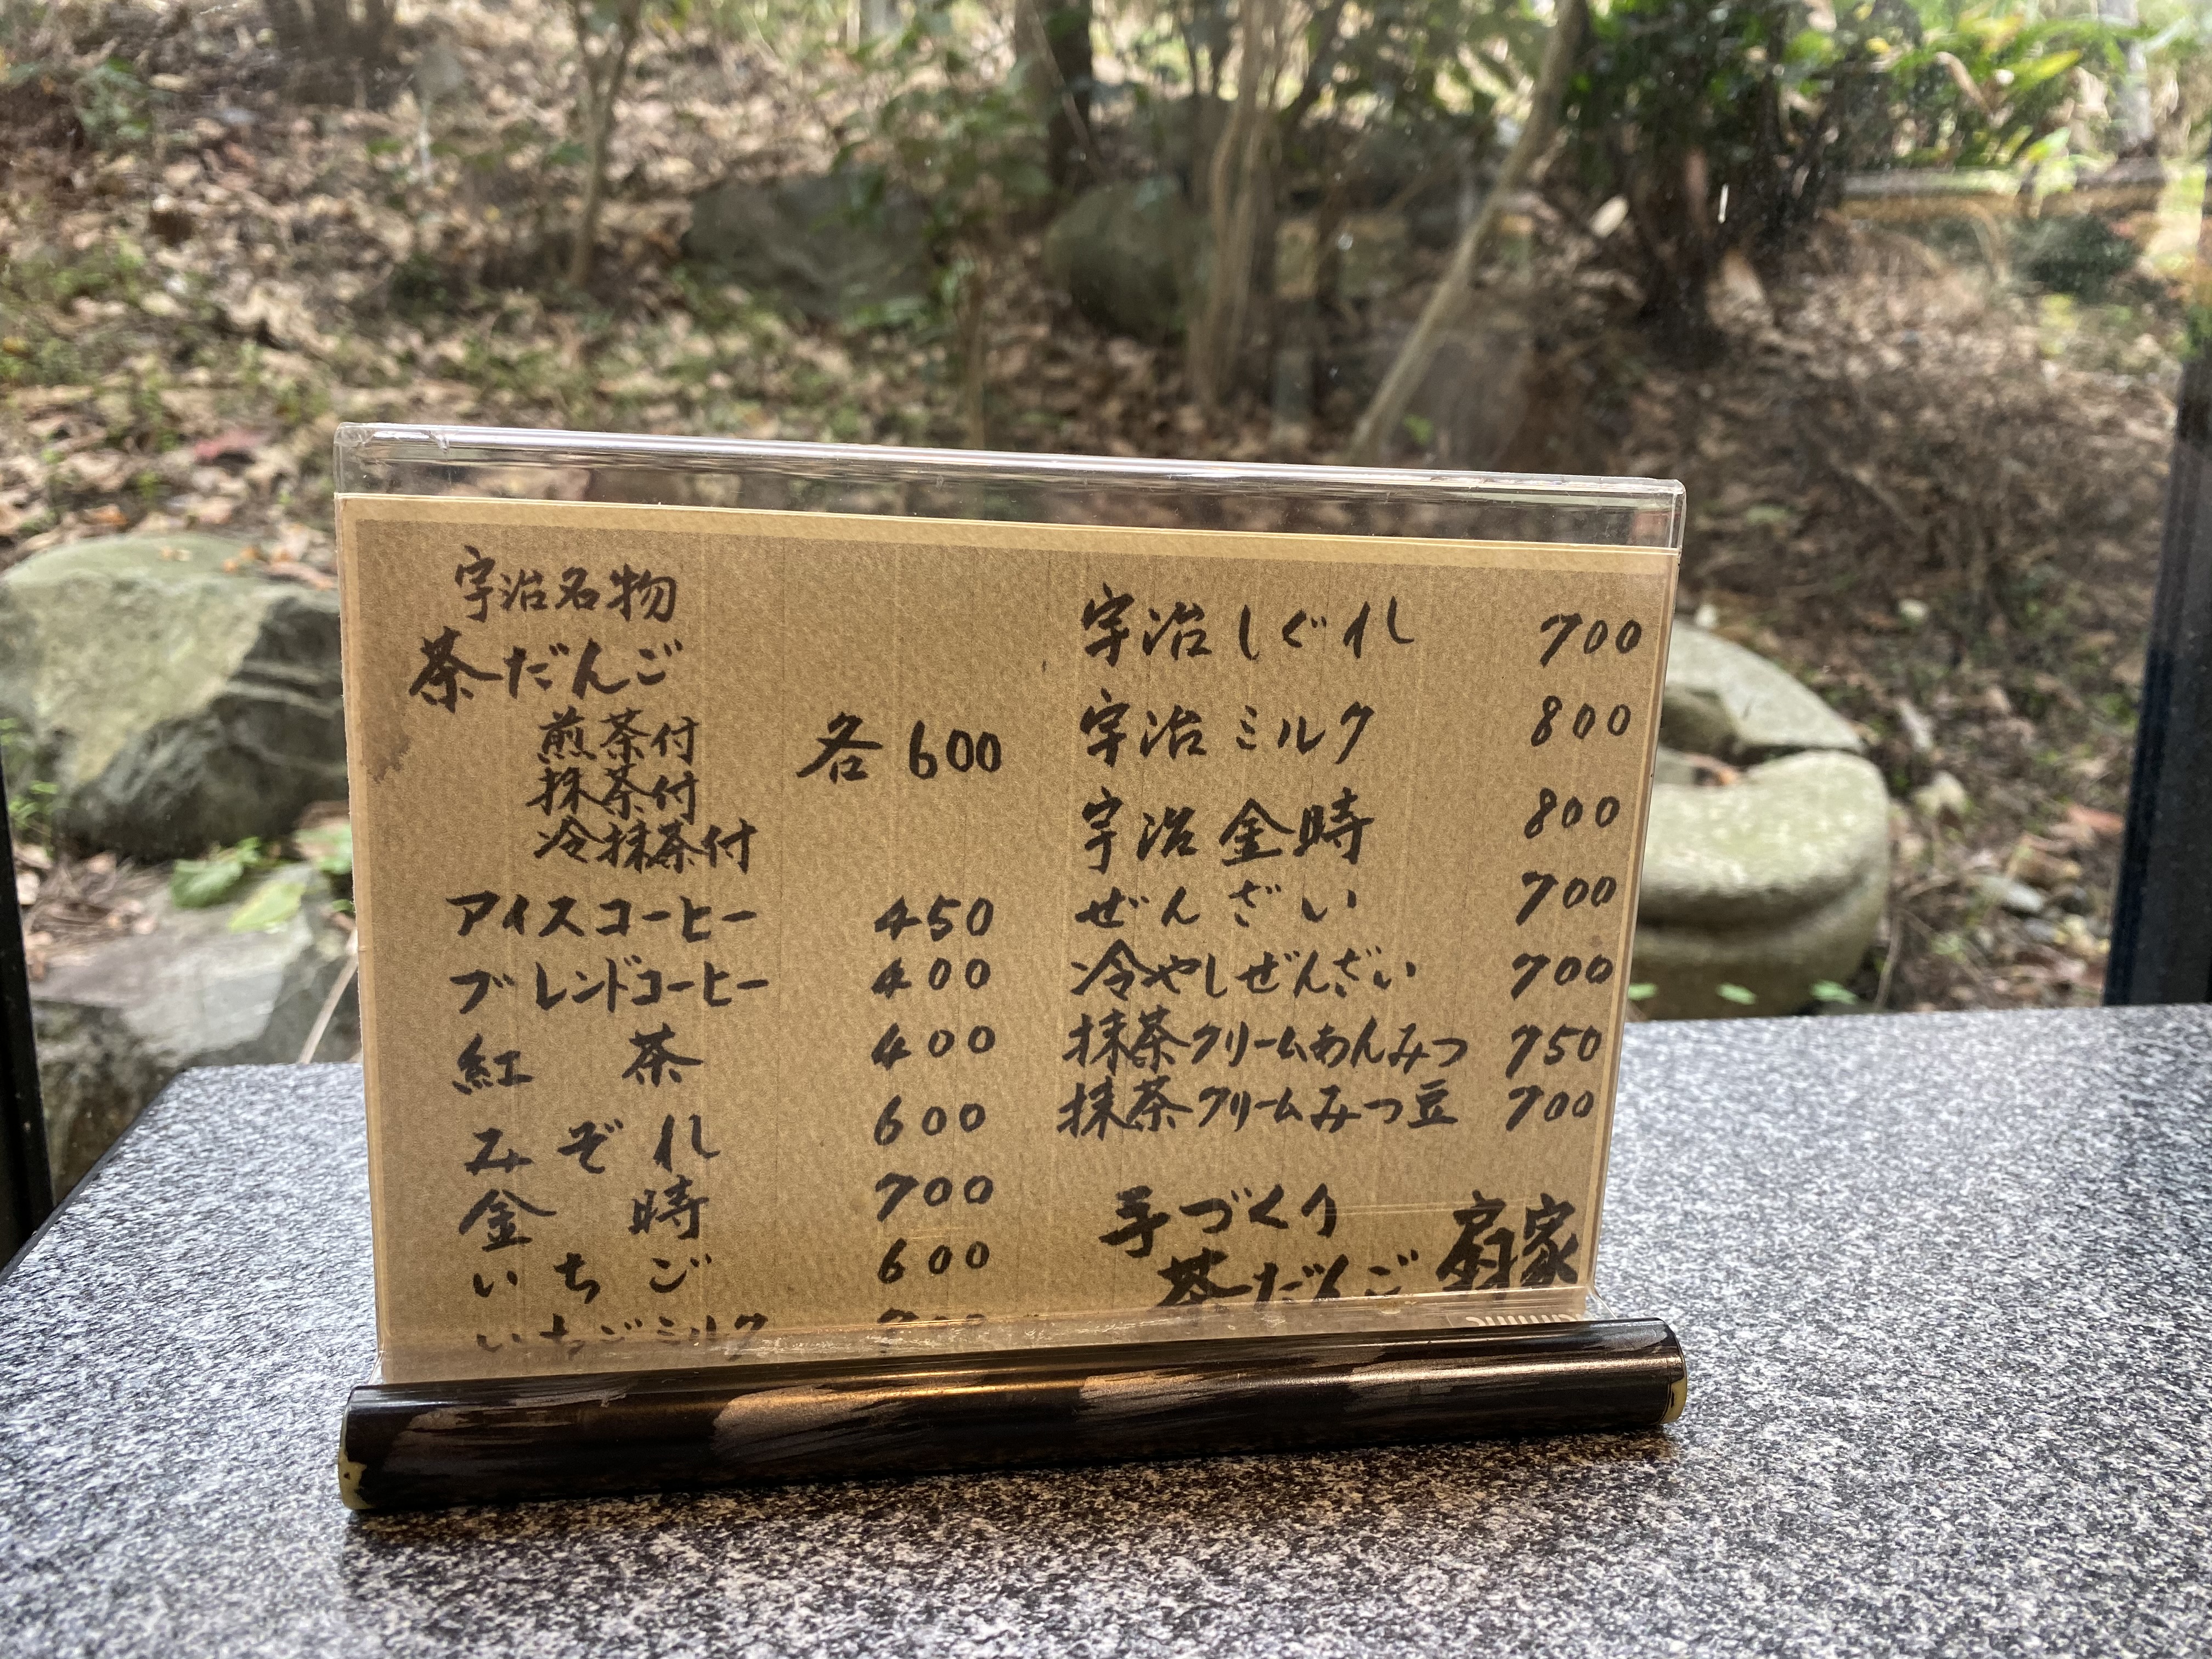 宇治名物
茶だんご
煎茶付
抹茶付
冷抹茶付
各 600
アイスコーヒー 450
ブレンドコーヒー 400
紅茶 400
みぞれ 600
金時 700
いちご 600
いちごミルク
宇治しぐれ 700
宇治ミルク 800
宇治金時 800
ぜんざい 700
冷やしぜんざい 700
抹茶クリームあんみつ 750
抹茶クリームみつ豆 700
手づくり
茶だんご 扇家